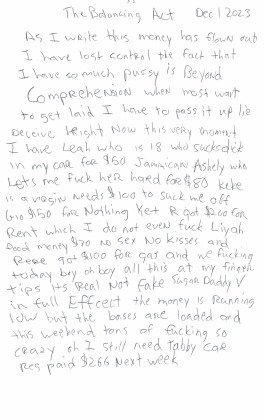 The Balancing Act Dec 1 2023
As I write this money has flown out
I have lost control the fact that
I have so much pussy is Beyond
Comprehension when most want
to get laid I have to pass it up lie
Deceive Right Now this very moment
I have Leah who is 18 who sucks dick
in my car for $60 Jamaican Ashely who
Lets me fuck her hard for $80 keke
is a virgin needs $100 to suck me off
Gio $50 for Nothing yet R got $200 for
Rent which I do not even fuck Liyah
Good money $70 no sex No kisses and
Rene got $100 for gas and we fucking
today boy oh boy all this at my finger
tips its Real Not fake Sugar Daddy V
in full Effect the money is Running
low but the bases are loaded and
this weekend tons of fucking so
crazy oh I still need tabby car
Reg paid $266 Next week